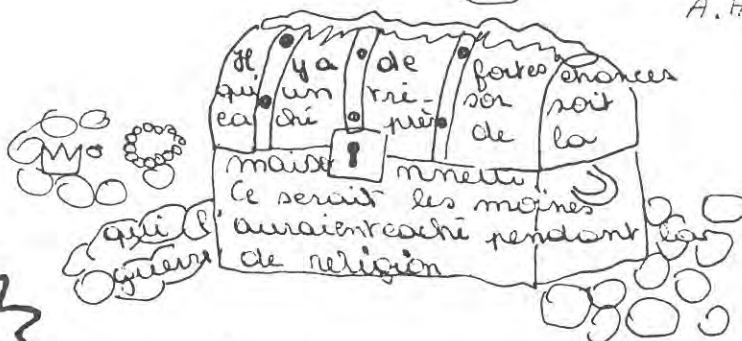 A.H
Il y a de fortes chances
qui un tré- sor soit
caché près de la
maisonnette
Ce serait les moines
qui l'auraient caché pendant la
guerre de religion